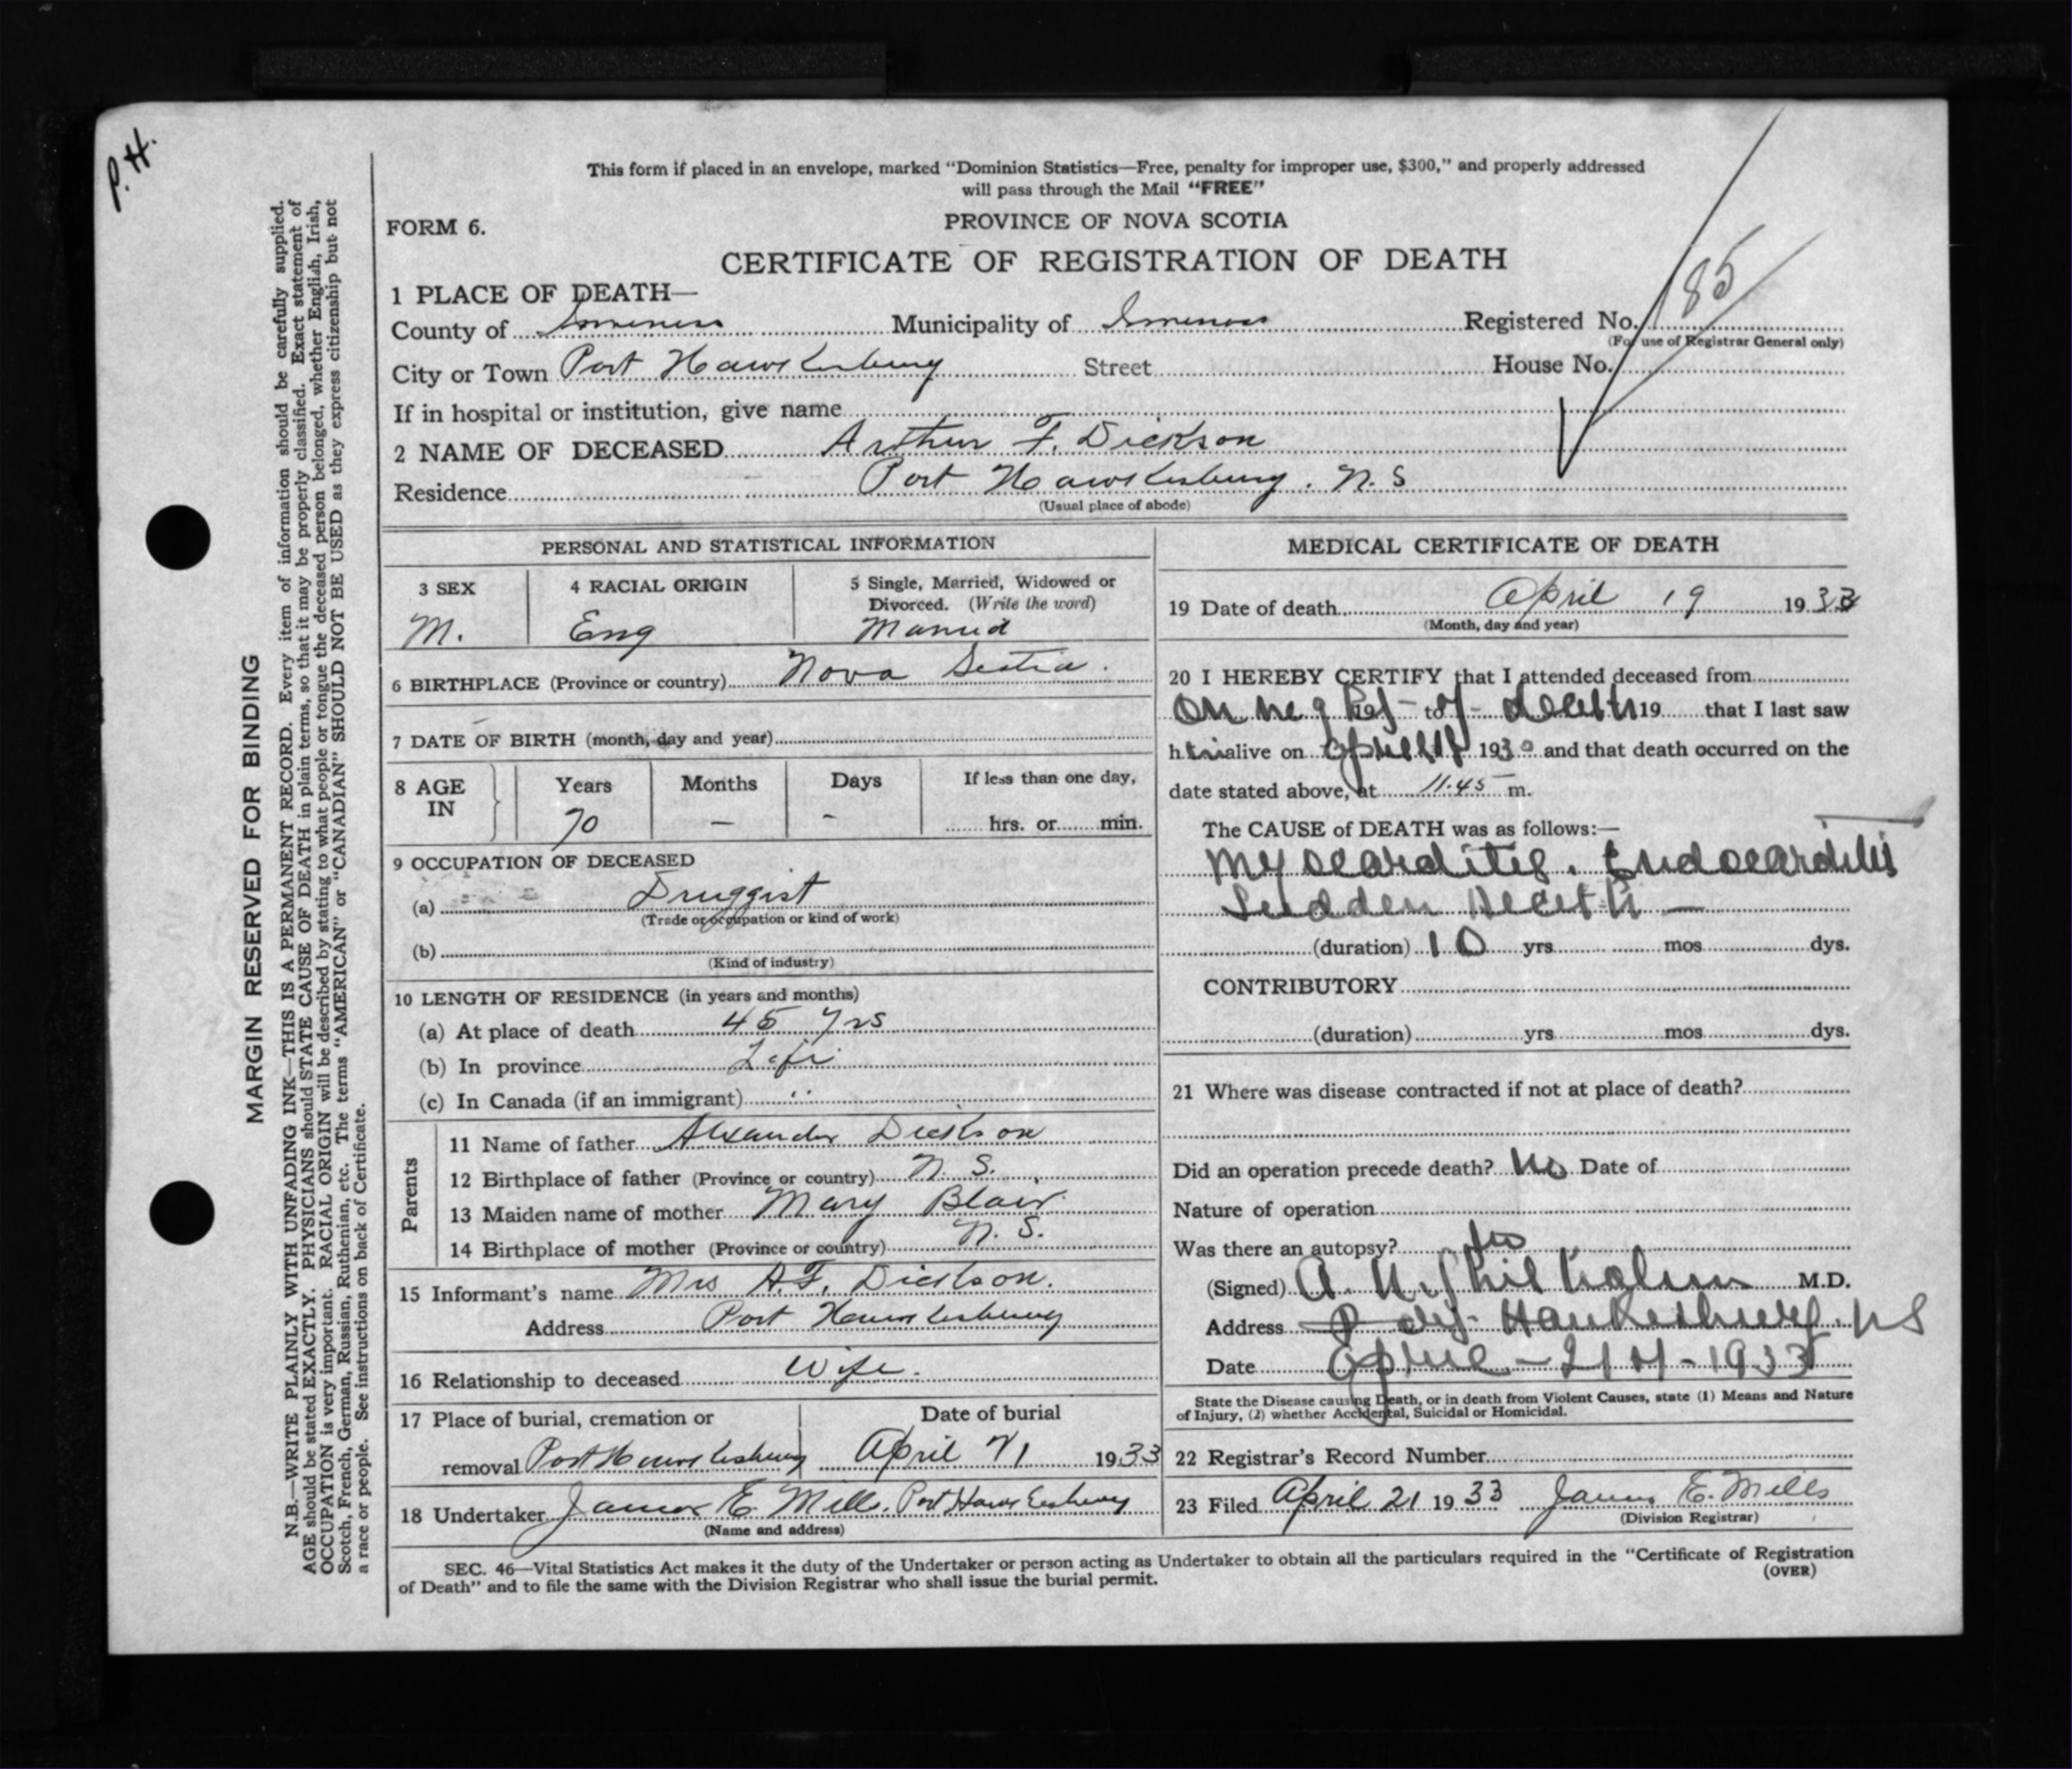 P. H.
This form if placed in an envelope, marked "Dominion Statistics—Free, penalty for improper use, $300," and properly addressed
will pass through the Mail "FREE"
FORM 6.
PROVINCE OF NOVA SCOTIA
CERTIFICATE OF REGISTRATION OF DEATH
1 PLACE OF DEATH—
County of Inverness Municipality of Inverness Registered No. 185
(For use of Registrar General only)
City or Town Port Hawkesbury Street House No.
If in hospital or institution, give name
2 NAME OF DECEASED Arthur F. Dickson
Residence Port Hawkesbury. N. S
(Usual place of abode)
PERSONAL AND STATISTICAL INFORMATION
3 SEX 4 RACIAL ORIGIN 5 Single, Married, Widowed or
Divorced. (Write the word)
M. Eng Married
6 BIRTHPLACE (Province or country) Nova Scotia.
7 DATE OF BIRTH (month, day and year)
8 AGE IN Years Months Days If less than one day,
70 — - hrs. or min.
9 OCCUPATION OF DECEASED
(a) Druggist
(Trade or occupation or kind of work)
(b)
(Kind of industry)
10 LENGTH OF RESIDENCE (in years and months)
(a) At place of death 45 yrs
(b) In province Life
(c) In Canada (if an immigrant) "
Parents
11 Name of father Alexander Dickson
12 Birthplace of father (Province or country) N. S.
13 Maiden name of mother Mary Blair
14 Birthplace of mother (Province or country) N. S.
15 Informant's name Mrs A. F. Dickson.
Address Port Hawkesbury
16 Relationship to deceased Wife.
17 Place of burial, cremation or Date of burial
removal Port Hawkesbury April 21 1933
18 Undertaker James E. Mills. Port Hawkesbury
(Name and address)
MEDICAL CERTIFICATE OF DEATH
19 Date of death April 19 1933
(Month, day and year)
20 I HEREBY CERTIFY that I attended deceased from
On night 19 to of death 19 that I last saw
h alive on April 193 and that death occurred on the
date stated above, at 11.45 m.
The CAUSE of DEATH was as follows:—
Myocarditis. Endocarditis
Sudden Death —
(duration) 10 yrs mos dys.
CONTRIBUTORY
(duration) yrs mos dys.
21 Where was disease contracted if not at place of death?
Did an operation precede death? No Date of
Nature of operation
Was there an autopsy? No
(Signed) A. M.D.
Address Port Hawkesbury. N S
Date April - 21st - 1933
State the Disease causing Death, or in death from Violent Causes, state (1) Means and Nature
of Injury, (2) whether Accidental, Suicidal or Homicidal.
22 Registrar's Record Number
23 Filed April 21 1933 James E. Mills
(Division Registrar)
SEC. 46—Vital Statistics Act makes it the duty of the Undertaker or person acting as Undertaker to obtain all the particulars required in the "Certificate of Registration
of Death" and to file the same with the Division Registrar who shall issue the burial permit.
(OVER)
MARGIN RESERVED FOR BINDING
N.B.—WRITE PLAINLY WITH UNFADING INK—THIS IS A PERMANENT RECORD. Every item of information should be carefully supplied.
AGE should be stated EXACTLY. PHYSICIANS should STATE CAUSE OF DEATH in plain terms, so that it may be properly classified. Exact statement of
OCCUPATION is very important. RACIAL ORIGIN will be described by stating to what people or tongue the deceased person belonged, whether English, Irish,
Scotch, French, German, Russian, Ruthenian, etc. The terms "AMERICAN" or "CANADIAN" SHOULD NOT BE USED as they express citizenship but not
a race or people. See instructions on back of Certificate.